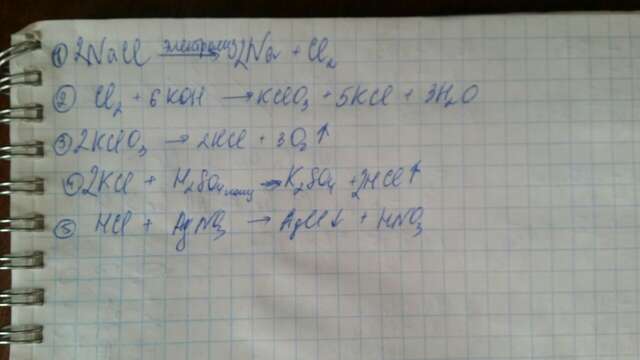 ① 2NaCl электролиз→ 2Na + Cl₂
② Cl₂ + 6KOH → KClO₃ + 5KCl + 3H₂O
③ 2KClO₃ → 2KCl + 3O₂↑
④ 2KCl + H₂SO₄ конц → K₂SO₄ + 2HCl↑
⑤ HCl + AgNO₃ → AgCl↓ + HNO₃